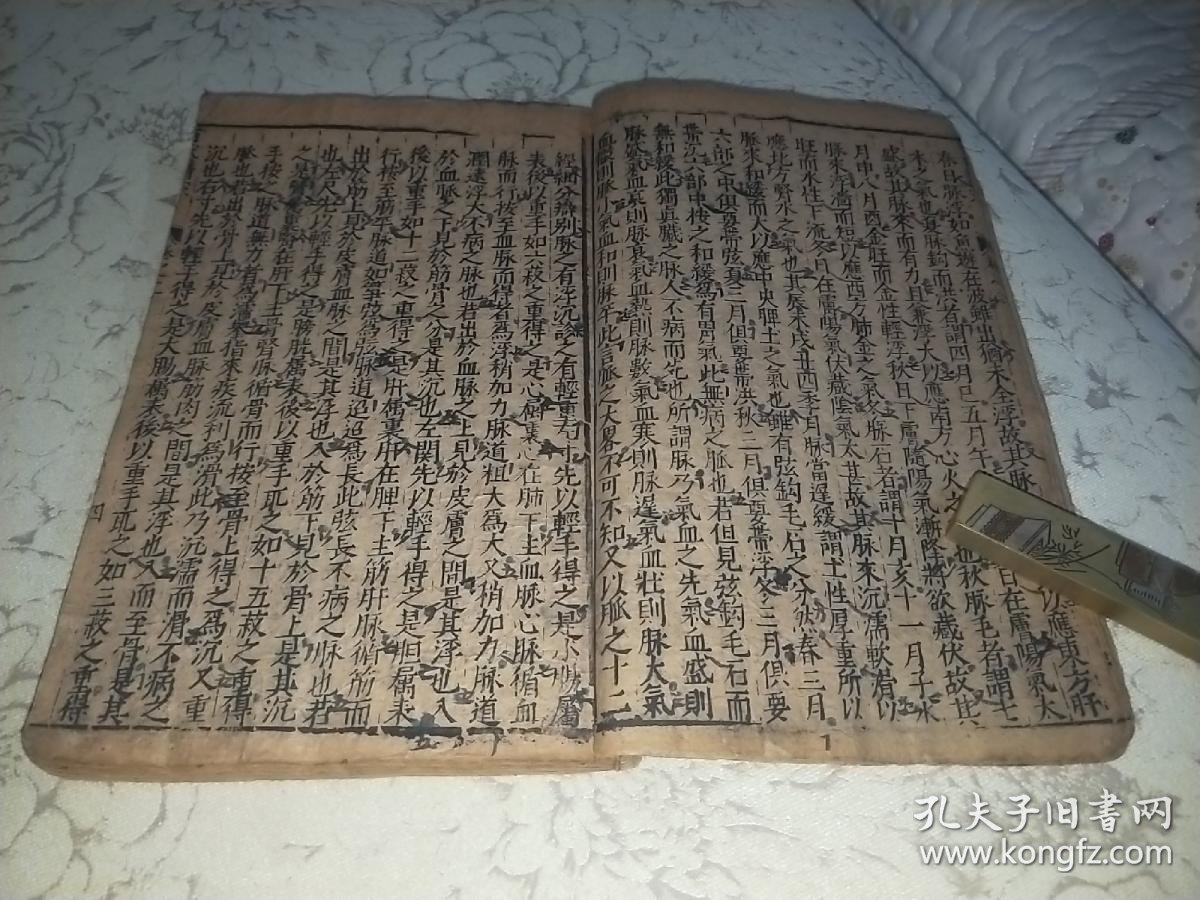 春日脉浮如魚遊在波雖出猶未全浮故其脉
木之氣也夏脉鈎而洪者謂四月巳五月午
盛故其脉來而有力且兼浮大以應南方心火之
也秋脉毛者謂七
月申八月酉金旺而金性輕浮秋日下膚陽氣漸降將欲藏伏故其
脉來浮濇而短以應西方肺金之氣冬脉石者謂十月亥十一月子水
旺而水性下流冬月在骨陽氣伏藏陰氣太甚故其脉來沉濡軟滑以
應北方腎水之氣也其辰未戌丑四季月脉當遲緩謂土性厚重所以
脉來和緩而大以應中央脾土之氣也雖有弦鈎毛石之分然春三月
六部之中俱要帶弦夏三月俱要帶洪秋三月俱要帶浮冬三月俱要
帶沉六部中按之和緩爲有胃氣此無病之脈也若但見弦鈎毛石而
無和緩此獨眞臟之脉人不病而死也所謂脉乃氣血之先氣血盛則
脉盛氣血衰則脉衰氣血熱則脉數氣血寒則脉遲氣血壯則脉大氣
血微則脉小氣血和則脉平此言脈之大畧不可不知又以脈之十二
經細分辨别脉之有浮沉診之有輕重右寸先以輕手得之是小腸屬
表後以重手如六菽之重得之是心屬裏心在肺下主血脉心脉循血
脉而行按至血脉而得者爲浮稍加力脉道粗大爲大又稍加力脉道
濶遠浮大不病之脉也若出於血脉之上見於皮膚之間是其浮也入
於血脈之下見於筋骨之分是其沉也左關先以輕手得之是胆屬表
後以重手如十二菽之重得之是肝屬裏肝在脾下主筋肝脉循筋而
行按至筋平脉道如箏弦爲弦脉道迢迢爲長此弦長不病之脉也若
出於筋上見於皮膚血脉之間是其浮也入於筋下見於骨上是其沉
也左尺先以輕手得之是膀胱屬表後以重手取之如十五菽之重得
之是腎屬裏腎在肝下主骨腎脉循骨而行按至骨上得之爲沉又重
手按之脉道無力者爲濡舉指來疾流利爲滑此乃沉濡而滑不病之
脈也若出於骨上見於皮膚血脉筋肉之間是其浮也入而至骨是其
沉也右寸先以輕手得之是大腸屬表後以重手取之如三菽之重得
日在膚陽氣太
以應東方肝
四
1
孔夫子旧书网
www.kongfz.com